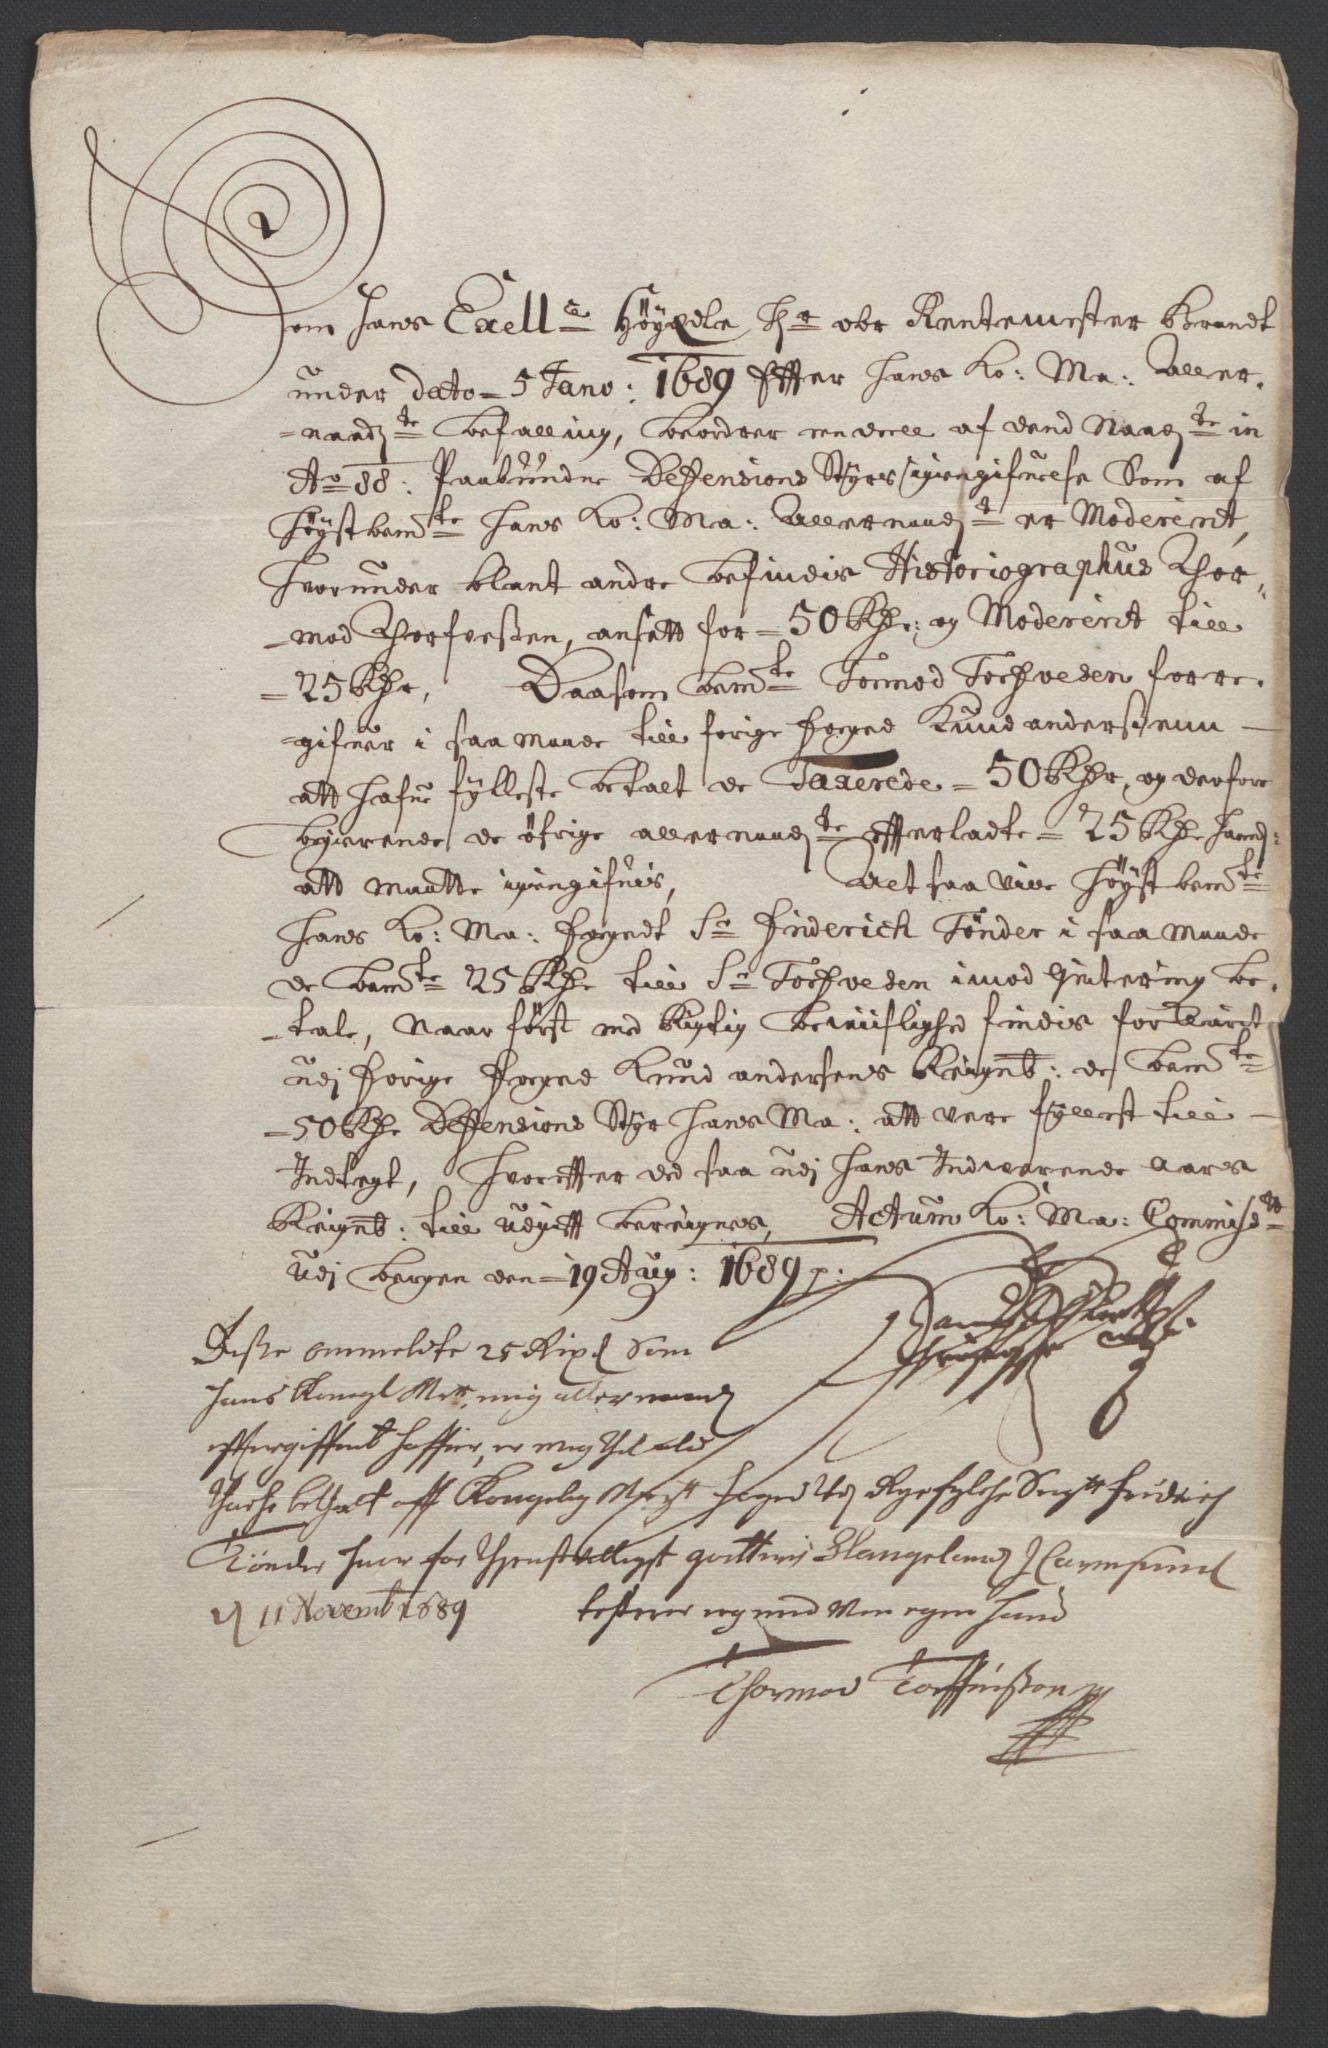 Som Hans Excell:ce Höyædle Hr obr Rentemester Brandt
under dato = 5 Jano: 1689 Effter Hans Ko: Ma: Aller-
=naad:te befalling, beordrer een deell af dend Naad:te in
Ao 88: Paabudne Defensions Styrs igiengifuelse Som af
Höystbem:te Hans Ko: Ma: Allernaad:t er Moderert,
hvorunder blant andre befindis Historiographus Thor-
-mod Thorfvesen, ansatt for = 50 Rdr: og Moderert till
= 25 Rdr, Daasom bem:te Tormod Torfvesen forre-
=gifuer i saa maade till forige foged Knud anderssenn
att hafue fylleste betalt de Taxerede = 50 Rdr, og derfore
begierende de öfrige allernaad:te efterladte = 25 Rdr hannd:
att maatte igiengifuis, Alt saa vill Höystbem:te
Hans Ko: Ma: fogedt Sr Friderich Tönder i saa maade
de bem:te 25 Rdr till Sr Torfvesen imod qvitering be-
-tale, naar först med Rigtig beviislighed findis forklaret
udj forige foged Knud andersens Reignb: de bem:te
= 50 Rdr Defensions Styr Hans Ma: att vere fyllest till
Indtegt, hvoreffter det saa udj Hans Indverende aars
Reignb: till Udgifft bereignes, Actum Ko: Ma: Commiss:tt
udj bergen den = 19 Aug: 1689 p:
Diße ommelte 25 Rixd Som
Hans Kongl Mtt, mig allernaad
effvergiffvet haffver, er mig til
Tacke bethalt aff Kongelig Maytt foged udj Ryefylche Sr Fridrich
Tönder huor for thienstvilligst qvitteris Stangeland J Carmsund
d 11 Novemb 1689 testerer ieg med Min egen haand
Thormod Torffuißon